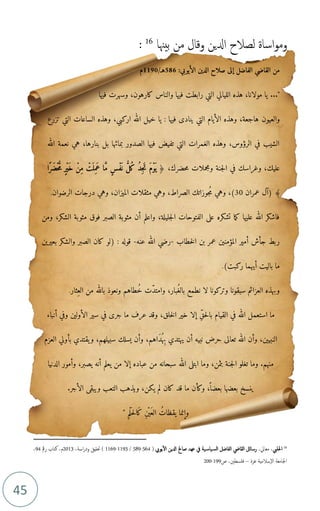 ومواساة لصلاح الدين وقال من بينها 16 :
من القاضي الفاضل إلى صلاح الدين الأيوبي: 586هـ/1190م
"... يا مولانا، هذه الليالي التي رابطت فيها والناس كارهون، وسهرت فيها
والعيون هاجعة، وهذه الأيام التي ينادى فيها : يا خيل الله اركبي، وهذه الساعات التي تزرع
الشيب في الرؤوس، وهذه الغمرات التي تفيض فيها الصدور بمائها بل بنارها، هي نعمة الله
عليك، وغراسك في الجنة ومجملات محضرك، ﴿ يَوْمَ تَجِدُ كُلُّ نَفْسٍ مَّا عَمِلَتْ مِنْ خَيْرٍ مُّحْضَرًا
﴾ (آل عمران 30)، وهي مجوزاتك الصراط، وهي مثقلات الميزان، وهي درجات الرضوان.
فاشكر الله عليها كما تشكره على الفتوحات الجليلة، واعلم أن مثوبة الصبر فوق مثوبة الشكر، ومن
ربط جأش أمير المؤمنين عمر بن الخطاب -رضي الله عنه- قوله : (لو كان الصبر والشكر بعيرين
ما باليت أيهما ركبت).
وبهذه العزائم سبقونا وتركونا لا نطمع بالغبار، وامتدّت خطاهم ونعوذ بالله من العثار.
ما استعمل الله في القيام بالحق إلا خير الخلق، وقد عرف ما جرى في سير الأولين وفي أنباء
النبيين، وأن الله تعالى حرض نبيه أن يهتدي بهداهم، وأن يسلك سبيلهم، ويقتدي بأولي العزم
منهم. وما تغلو الجنة بثمن، وما ابتلى الله سبحانه من عباده إلا من يعلم أنه يصبر، وأمور الدنيا
ينسخ بعضها بعضاً، وكأن ما قد كان لم يكن، ويذهب التعب ويبقى الأجر.
وإنما يقظات العين كالحلم "
16 الحلبي، معالي. رسائل القاضي الفاضل السياسية في عهد صلاح الدين الأيوبي ( 564 589 / 1193-1169 ) تحقيق ودراسة، 2013م، كتاب رقم 94،
الجامعة الإسلامية غزة – فلسطين، ص199-200
45